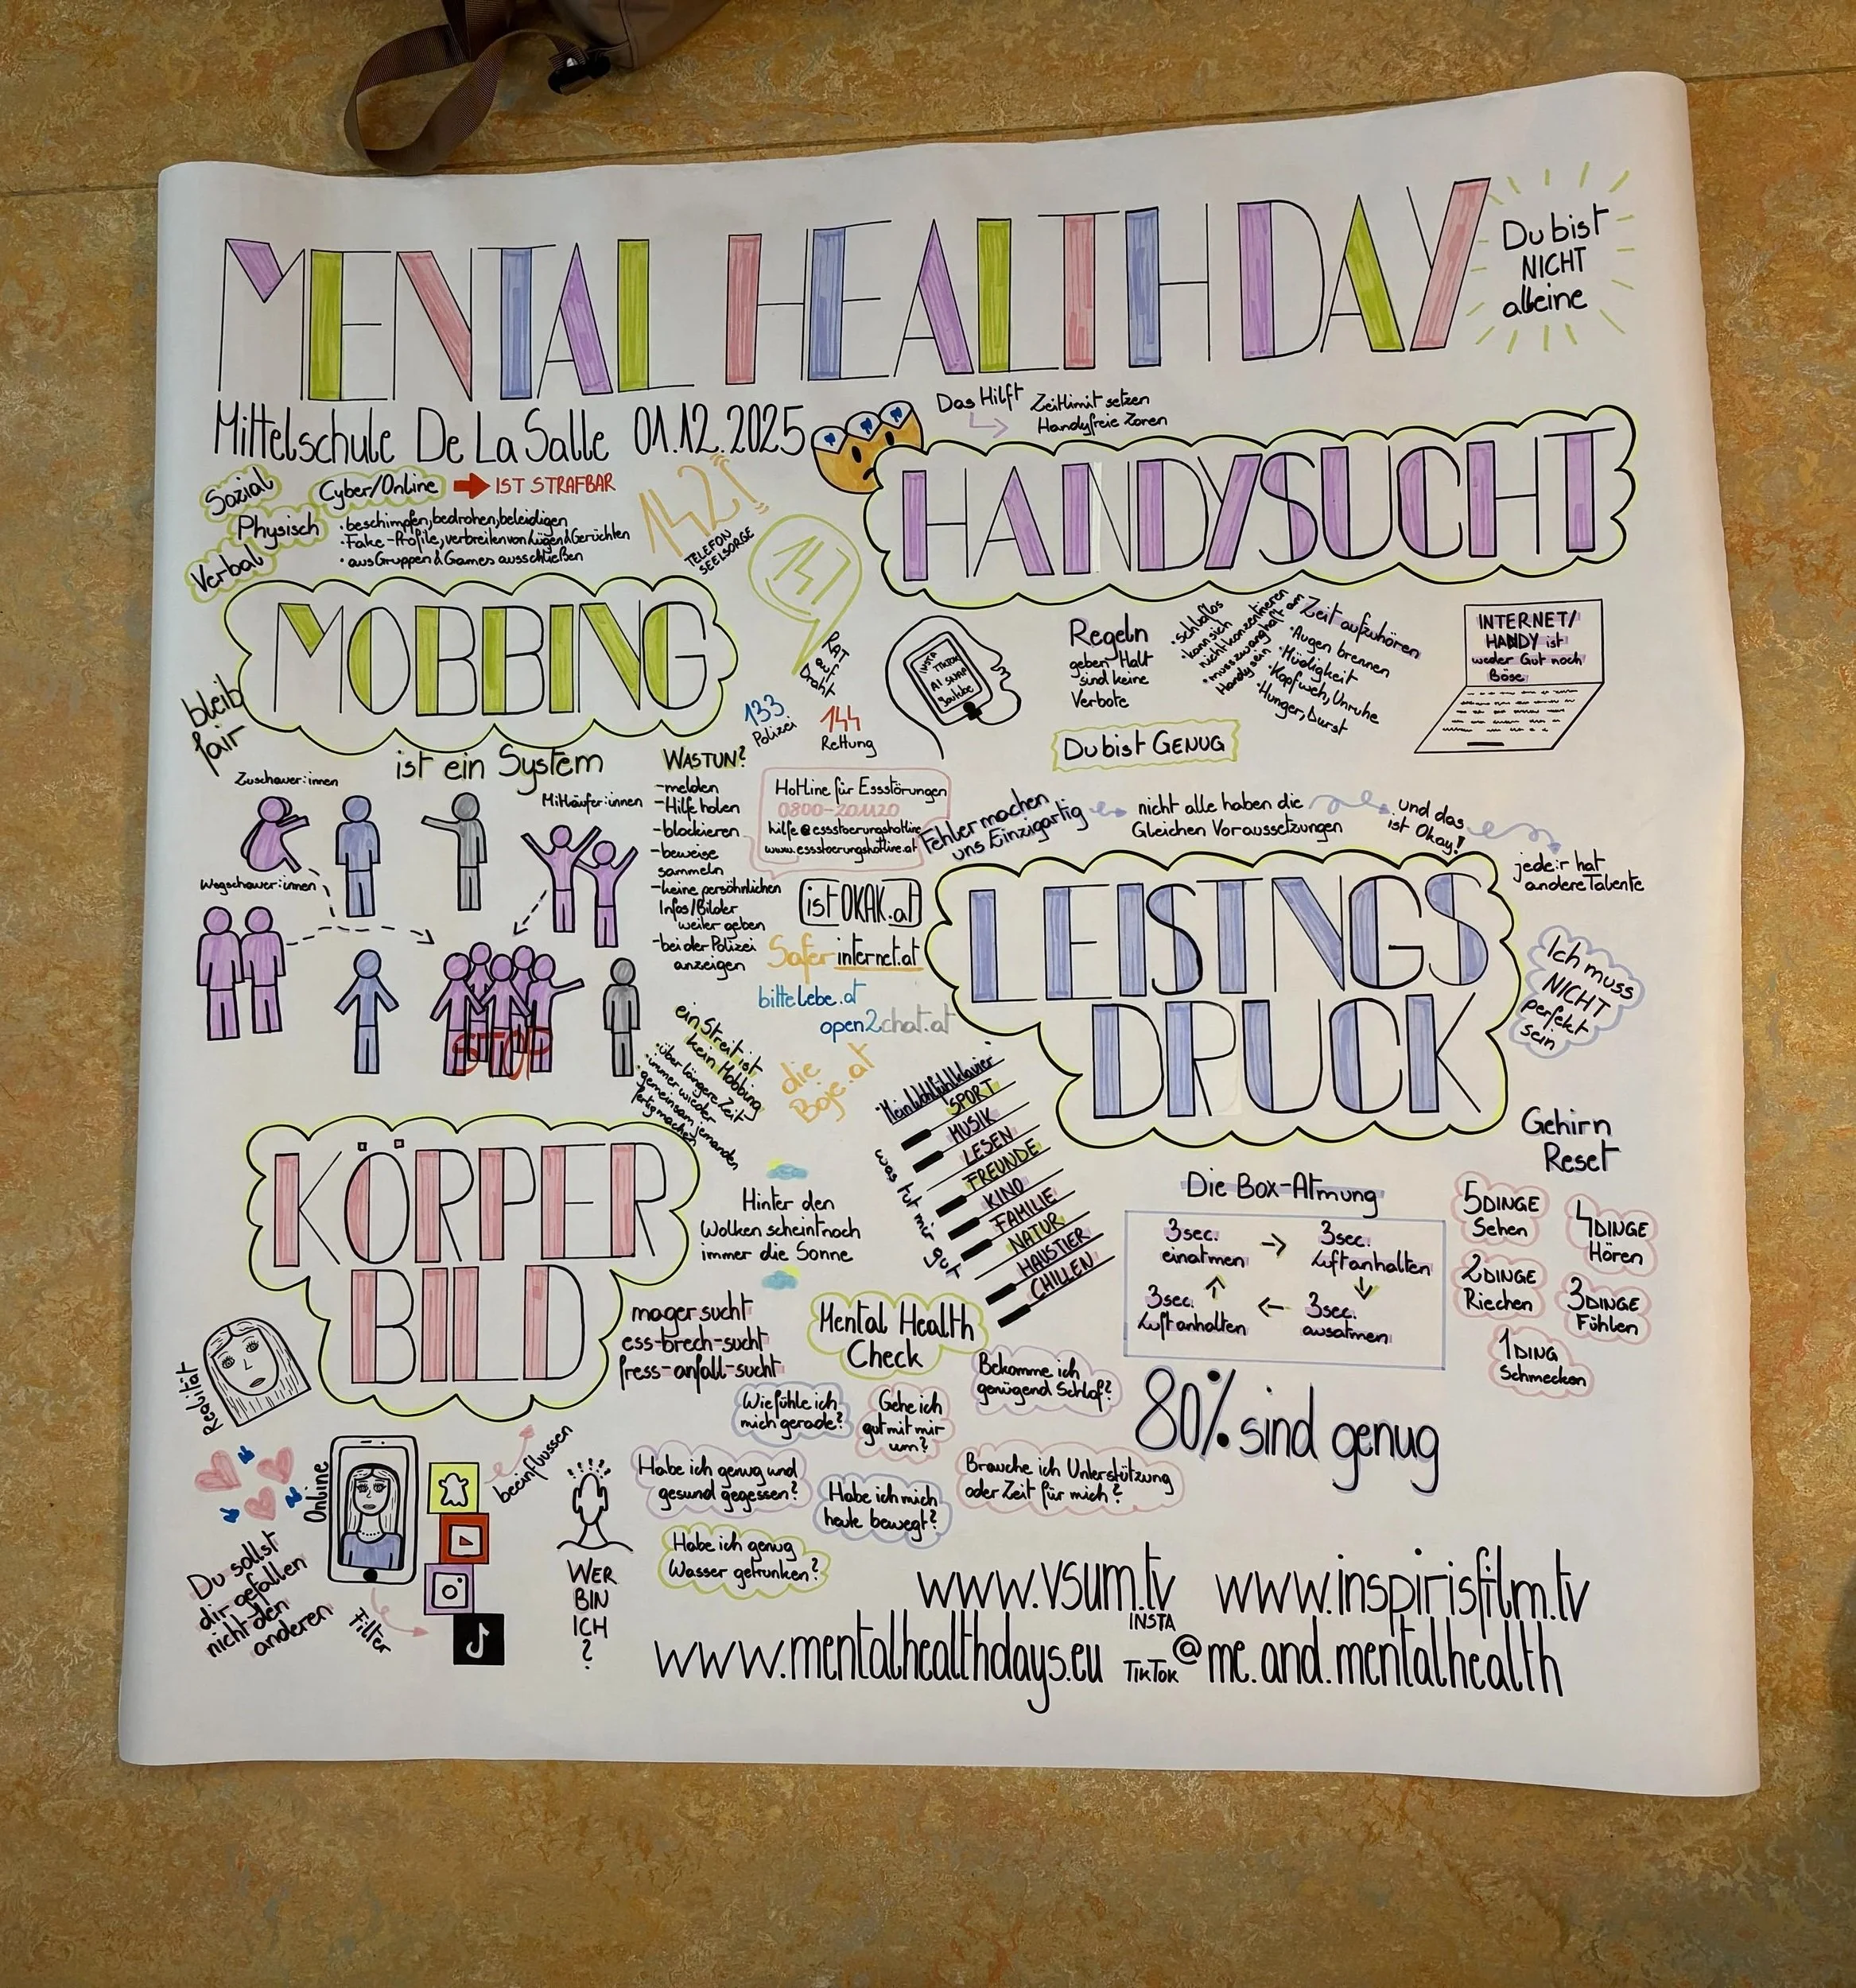 MENTAL HEALTH DAY
Du bist
NICHT
alleine
Mittelschule De La Salle 01.12.2025
Das Hilft
Zeitlimit setzen
Handyfreie Zonen
HANDYSUCHT
Sozial
Physisch
Verbal
Cyber/Online
IST STRAFBAR
• beschimpfen, bedrohen, beleidigen
• Fake-Profile, verbreiten von Lügen & Gerüchten
• aus Gruppen & Games ausschließen
142!
TELEFON
SEELSORGE
147
RAT
auf
Draht
133
Polizei
144
Rettung
MOBBING
bleib
fair
ist ein System
Zuschauer:innen
Mitläufer:innen
Wegschauer:innen
STOP
WAS TUN?
-melden
-Hilfe holen
-blockieren
-beweise
sammeln
-keine persönlichen
Infos/Bilder
weiter geben
-bei der Polizei
anzeigen
ein Streit ist
kein Mobbing
• über längere Zeit
• immer wieder
• gemeinsam jemanden
fertig machen
INSTA
TIKTOK
AI SNAP
Youtube
Regeln
geben Halt
sind keine
Verbote
• schlaflos
• kann sich
nicht konzentrieren
• muss zwanghaft am
Handy sein
Zeit aufzuhören
• Augen brennen
• Müdigkeit
• Kopfweh, Unruhe
• Hunger, Durst
INTERNET/
HANDY ist
weder Gut noch
Böse
Du bist GENUG
Hotline für Essstörungen
0800-201120
hilfe@essstoerungshotline
www.essstoerungshotline.at
ist OKAK.at
Saferinternet.at
bittelebe.at
open2chat.at
die
Boje.at
Fehler machen
uns Einzigartig
nicht alle haben die
Gleichen Voraussetzungen
und das
ist Okay!
jede:r hat
andere Talente
LEISTNGS
DRUCK
Ich muss
NICHT
perfekt
sein
"Mein Wohlfühlklavier"
was tut mir gut
SPORT
MUSIK
LESEN
FREUNDE
KINO
FAMILIE
NATUR
HAUSTIER
CHILLEN
Die Box-Atmung
3sec.
einatmen
3sec.
Luft anhalten
3sec.
Luft anhalten
3sec.
ausatmen
Gehirn
Reset
5 DINGE
Sehen
4 DINGE
Hören
2 DINGE
Riechen
3 DINGE
Fühlen
1 DING
Schmecken
80% sind genug
KÖRPER
BILD
Hinter den
Wolken scheint noch
immer die Sonne
magersucht
ess-brech-sucht
fress-anfall-sucht
Realität
Online
beeinflussen
Filter
Du sollst
dir gefallen
nicht den
anderen
WER
BIN
ICH
?
Mental Health
Check
Wie fühle ich
mich gerade?
Gehe ich
gut mit mir
um?
Bekomme ich
genügend Schlaf?
Habe ich genug und
gesund gegessen?
Habe ich mich
heute bewegt?
Brauche ich Unterstützung
oder Zeit für mich?
Habe ich genug
Wasser getrunken?
www.vsum.tv
www.inspirisfilm.tv
www.mentalhealthdays.eu
INSTA
TIKTOK
@me.and.mentalhealth